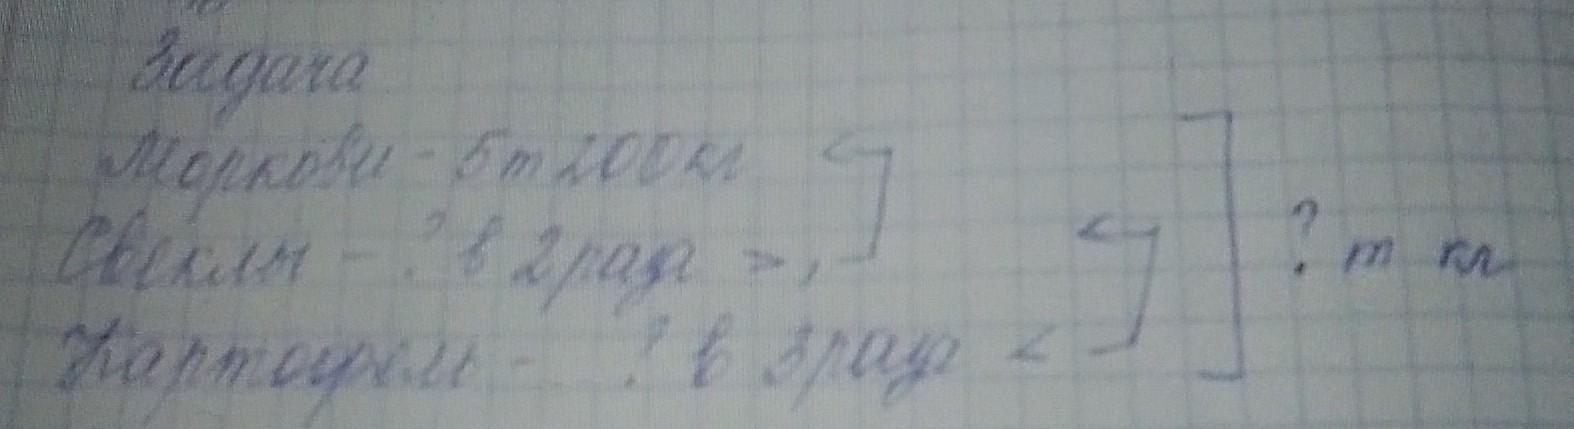 Задача
Моркови - 5т 200кг
Свеклы - ? в 2 раза >,
Картофель - ? в 3 раза <
? т кг